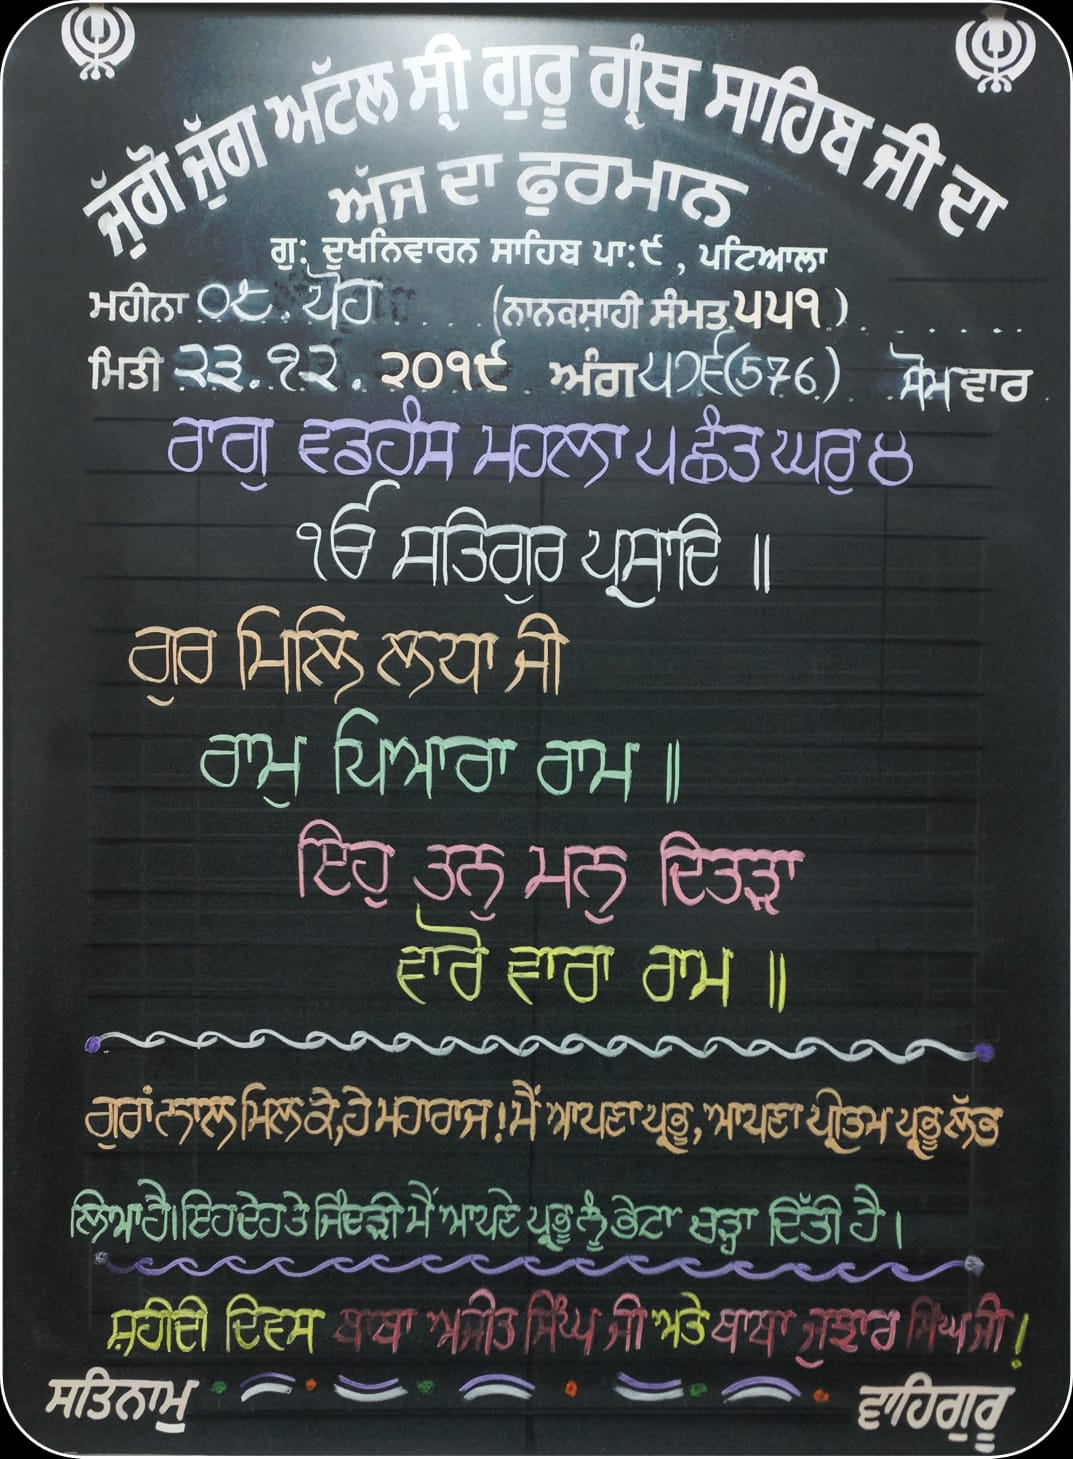 ਜੁੱਗੋ ਜੁੱਗ ਅਟੱਲ ਸ੍ਰੀ ਗੁਰੂ ਗ੍ਰੰਥ ਸਾਹਿਬ ਜੀ ਦਾ
ਅੱਜ ਦਾ ਫੁਰਮਾਨ
ਗੁ: ਦੂਖਨਿਵਾਰਨ ਸਾਹਿਬ ਪਾ:੯, ਪਟਿਆਲਾ
ਮਹੀਨਾ ੦੮. ਪੋਹ (ਨਾਨਕਸ਼ਾਹੀ ਸੰਮਤ ੫੫੧)
ਮਿਤੀ ੨੩.੧੨.੨੦੧੯ ਅੰਗ ੫੭੬(576) ਸੋਮਵਾਰ
ਰਾਗੁ ਵਡਹੰਸ ਮਹਲਾ ੫ ਛੰਤ ਘਰੁ ੪
ੴ ਸਤਿਗੁਰ ਪ੍ਰਸਾਦਿ ॥
ਗੁਰ ਮਿਲਿ ਲਧਾ ਜੀ
ਰਾਮੁ ਪਿਆਰਾ ਰਾਮ ॥
ਇਹੁ ਤਨੁ ਮਨੁ ਦਿਤੜਾ
ਵਾਰੋ ਵਾਰਾ ਰਾਮ ॥
ਗੁਰਾਂ ਨਾਲ ਮਿਲ ਕੇ, ਹੇ ਮਹਾਰਾਜ! ਮੈਂ ਆਪਣਾ ਪ੍ਰਭੂ, ਆਪਣਾ ਪ੍ਰੀਤਮ ਪ੍ਰਭੂ ਲੱਭ
ਲਿਆ ਹੈ। ਇਹ ਦੇਹ ਤੇ ਜਿੰਦੜੀ ਮੈਂ ਆਪਣੇ ਪ੍ਰਭੂ ਨੂੰ ਭੇਟਾ ਚੜ੍ਹਾ ਦਿੱਤੀ ਹੈ।
ਸ਼ਹੀਦੀ ਦਿਵਸ ਬਾਬਾ ਅਜੀਤ ਸਿੰਘ ਜੀ ਅਤੇ ਬਾਬਾ ਜੁਝਾਰ ਸਿੰਘ ਜੀ!
ਸਤਿਨਾਮੁ ਵਾਹਿਗੁਰੂ